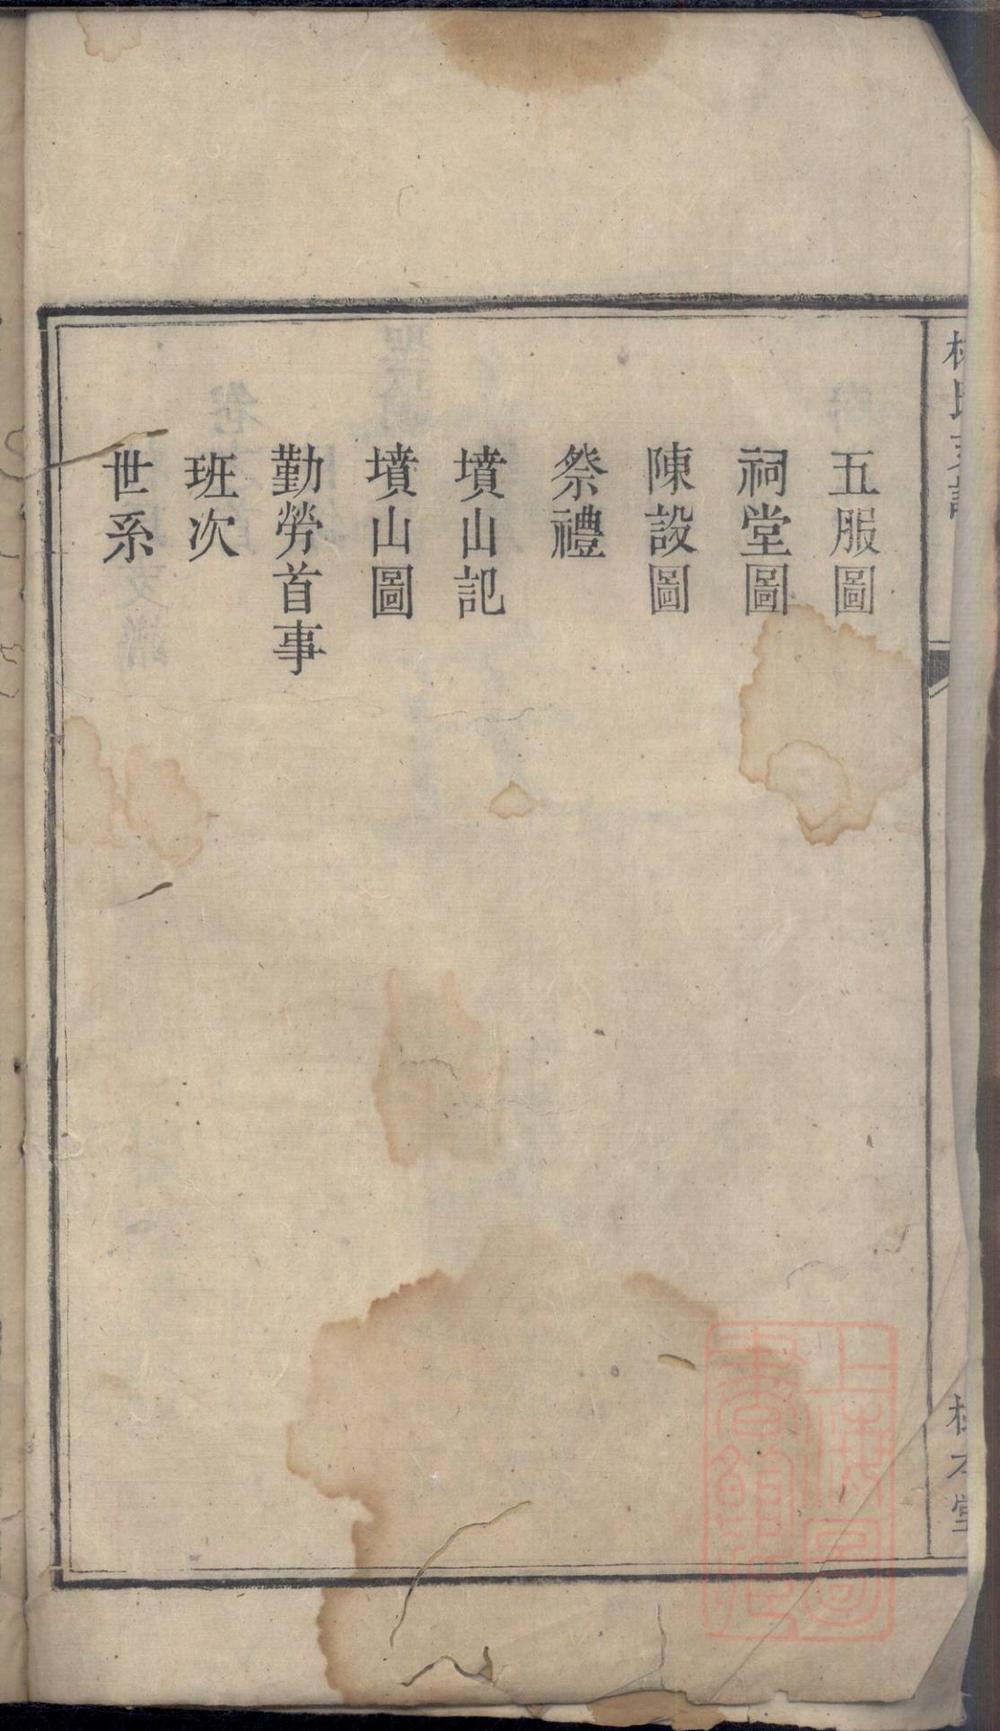 五服圖
祠堂圖
陳設圖
祭禮
墳山記
墳山圖
勤勞首事
班次
世系
上海圖
書館藏